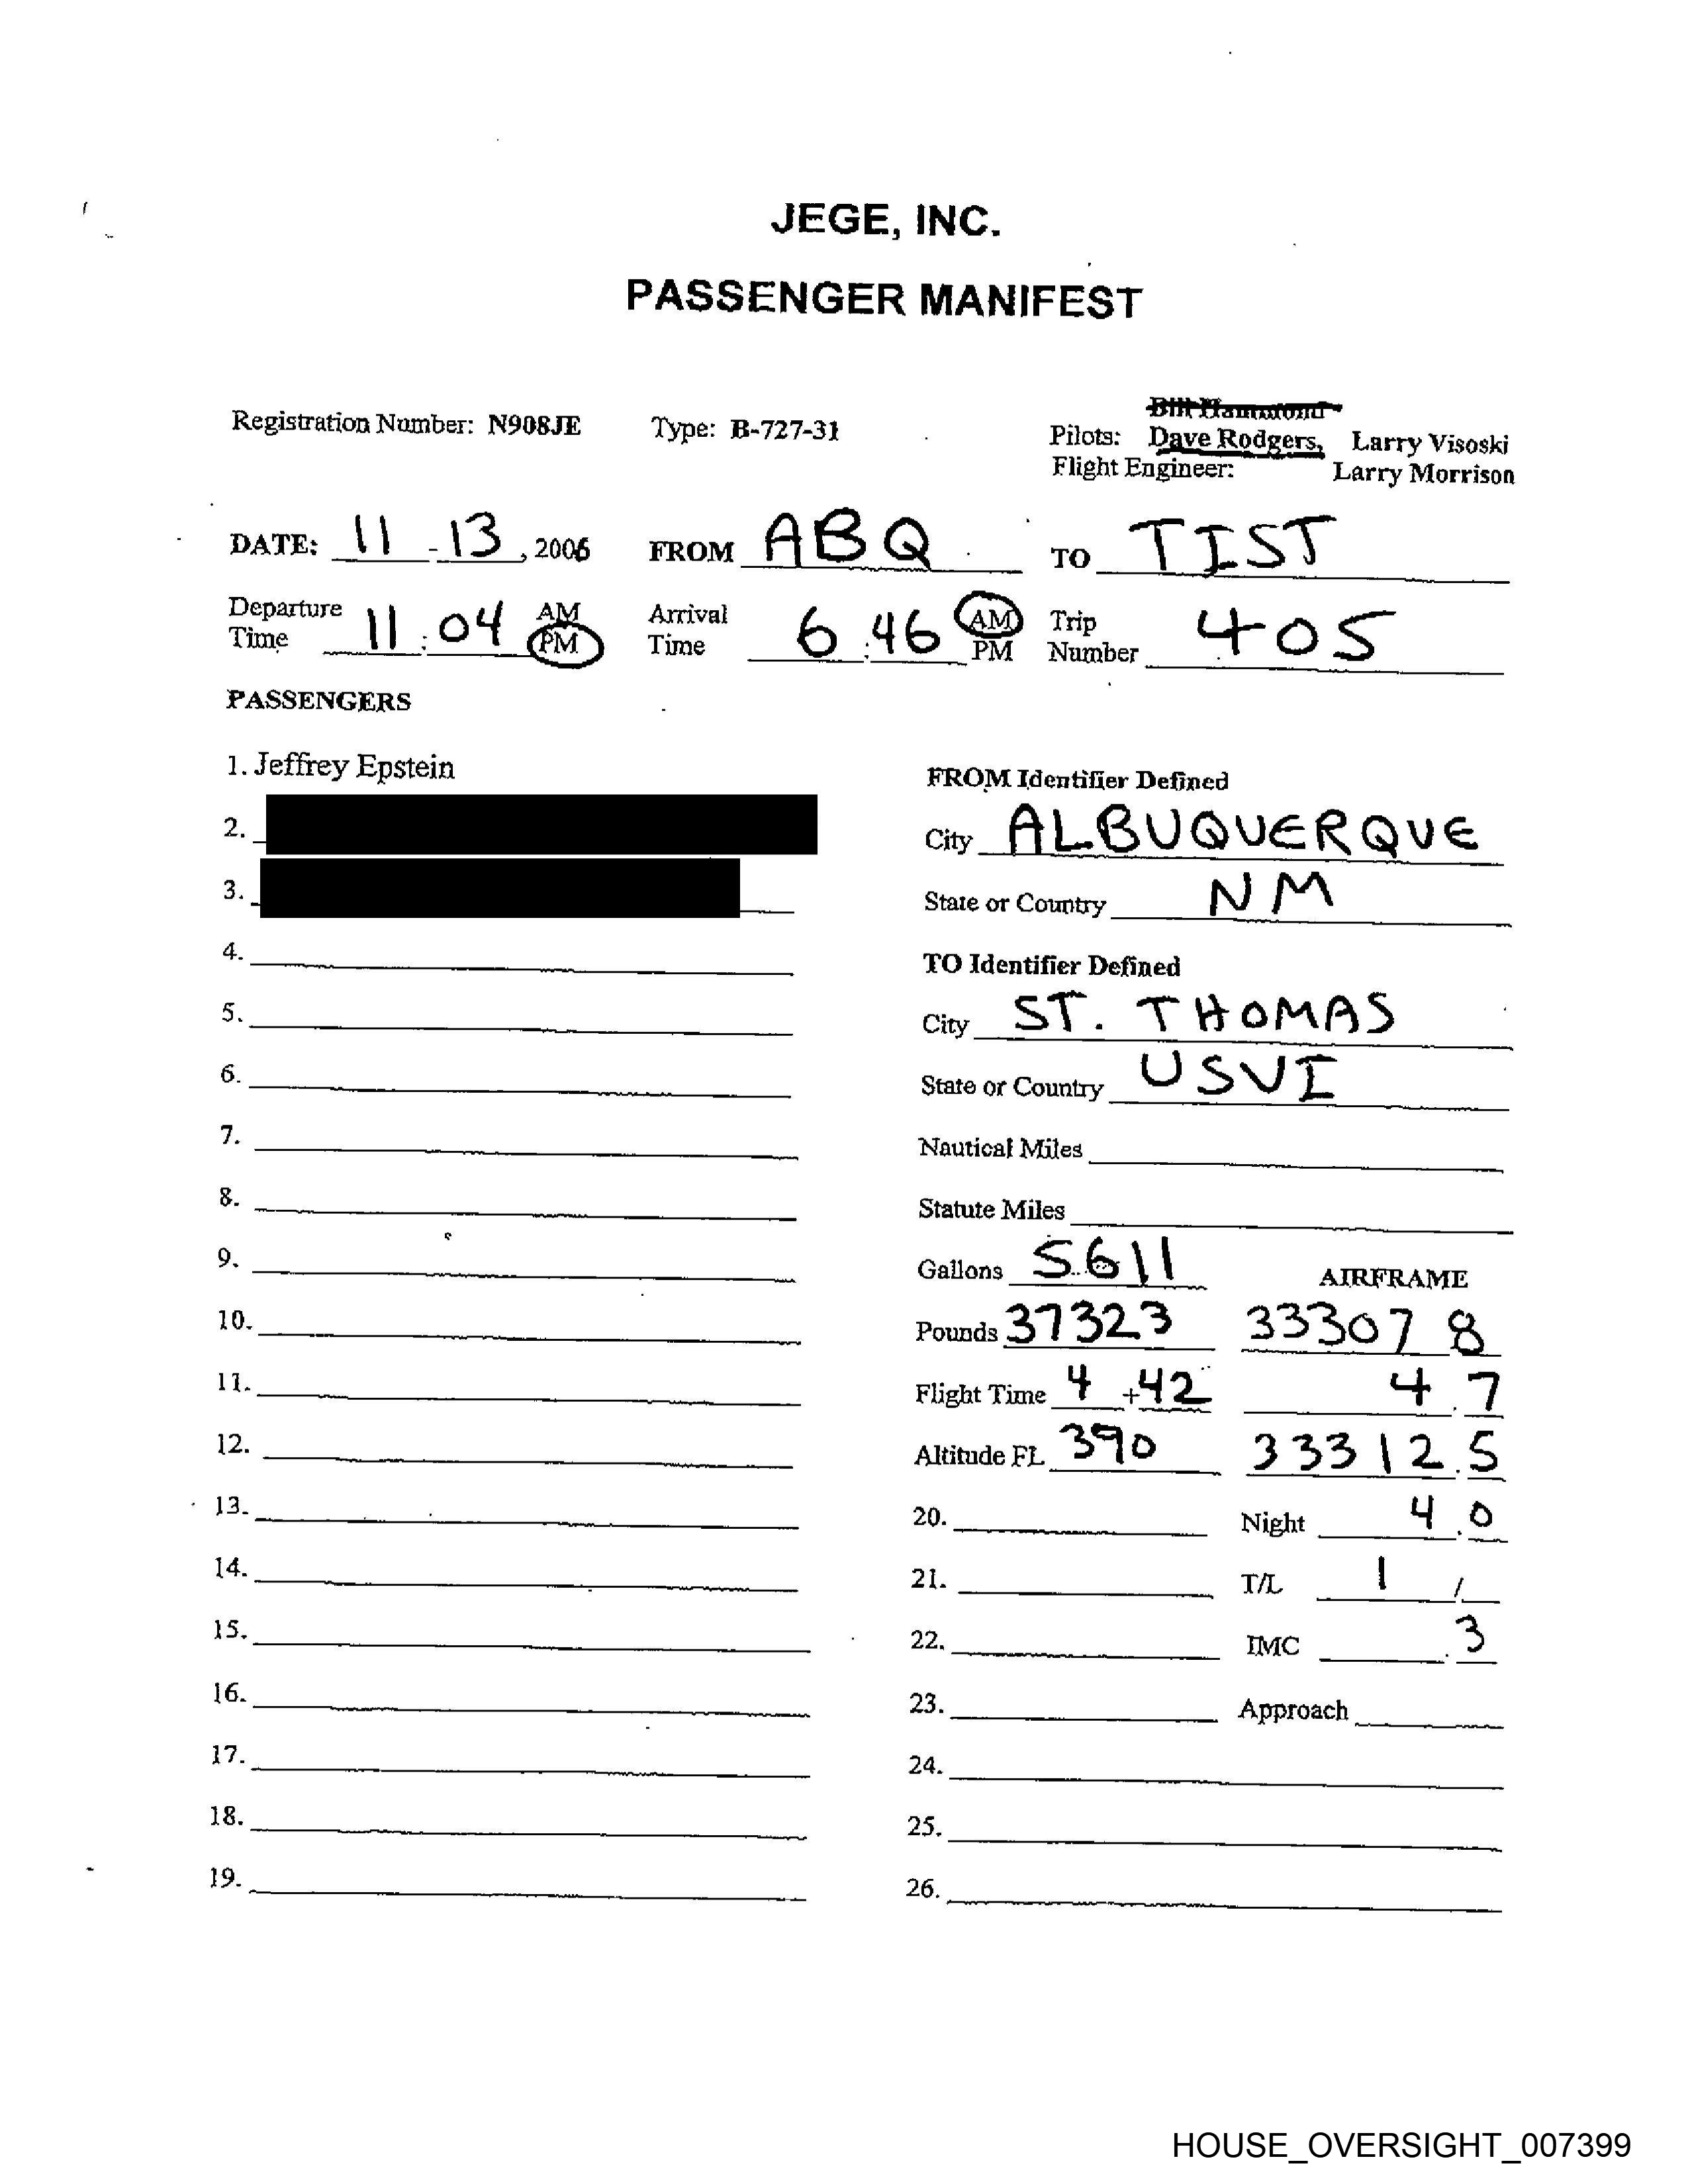 JEGE, INC.
PASSENGER MANIFEST
Bill Hammond
Registration Number: N908JE Type: B-727-31 Pilots: Dave Rodgers, Larry Visoski
Flight Engineer: Larry Morrison
DATE: 11 - 13, 2006 FROM ABQ TO TIST
Departure Time 11:04 AM PM Arrival Time 6:46 AM PM Trip Number 405
PASSENGERS
1. Jeffrey Epstein
2.
3.
4.
5.
6.
7.
8.
9.
10.
11.
12.
13.
14.
15.
16.
17.
18.
19.
FROM Identifier Defined
City ALBUQUERQUE
State or Country NM
TO Identifier Defined
City ST. THOMAS
State or Country USVI
Nautical Miles
Statute Miles
Gallons 5611 AIRFRAME
Pounds 37323 33307 8
Flight Time 4 +42 4.7
Altitude FL 390 33312.5
20. Night 4.0
21. T/L 1 /
22. IMC .3
23. Approach
24.
25.
26.
HOUSE_OVERSIGHT_007399